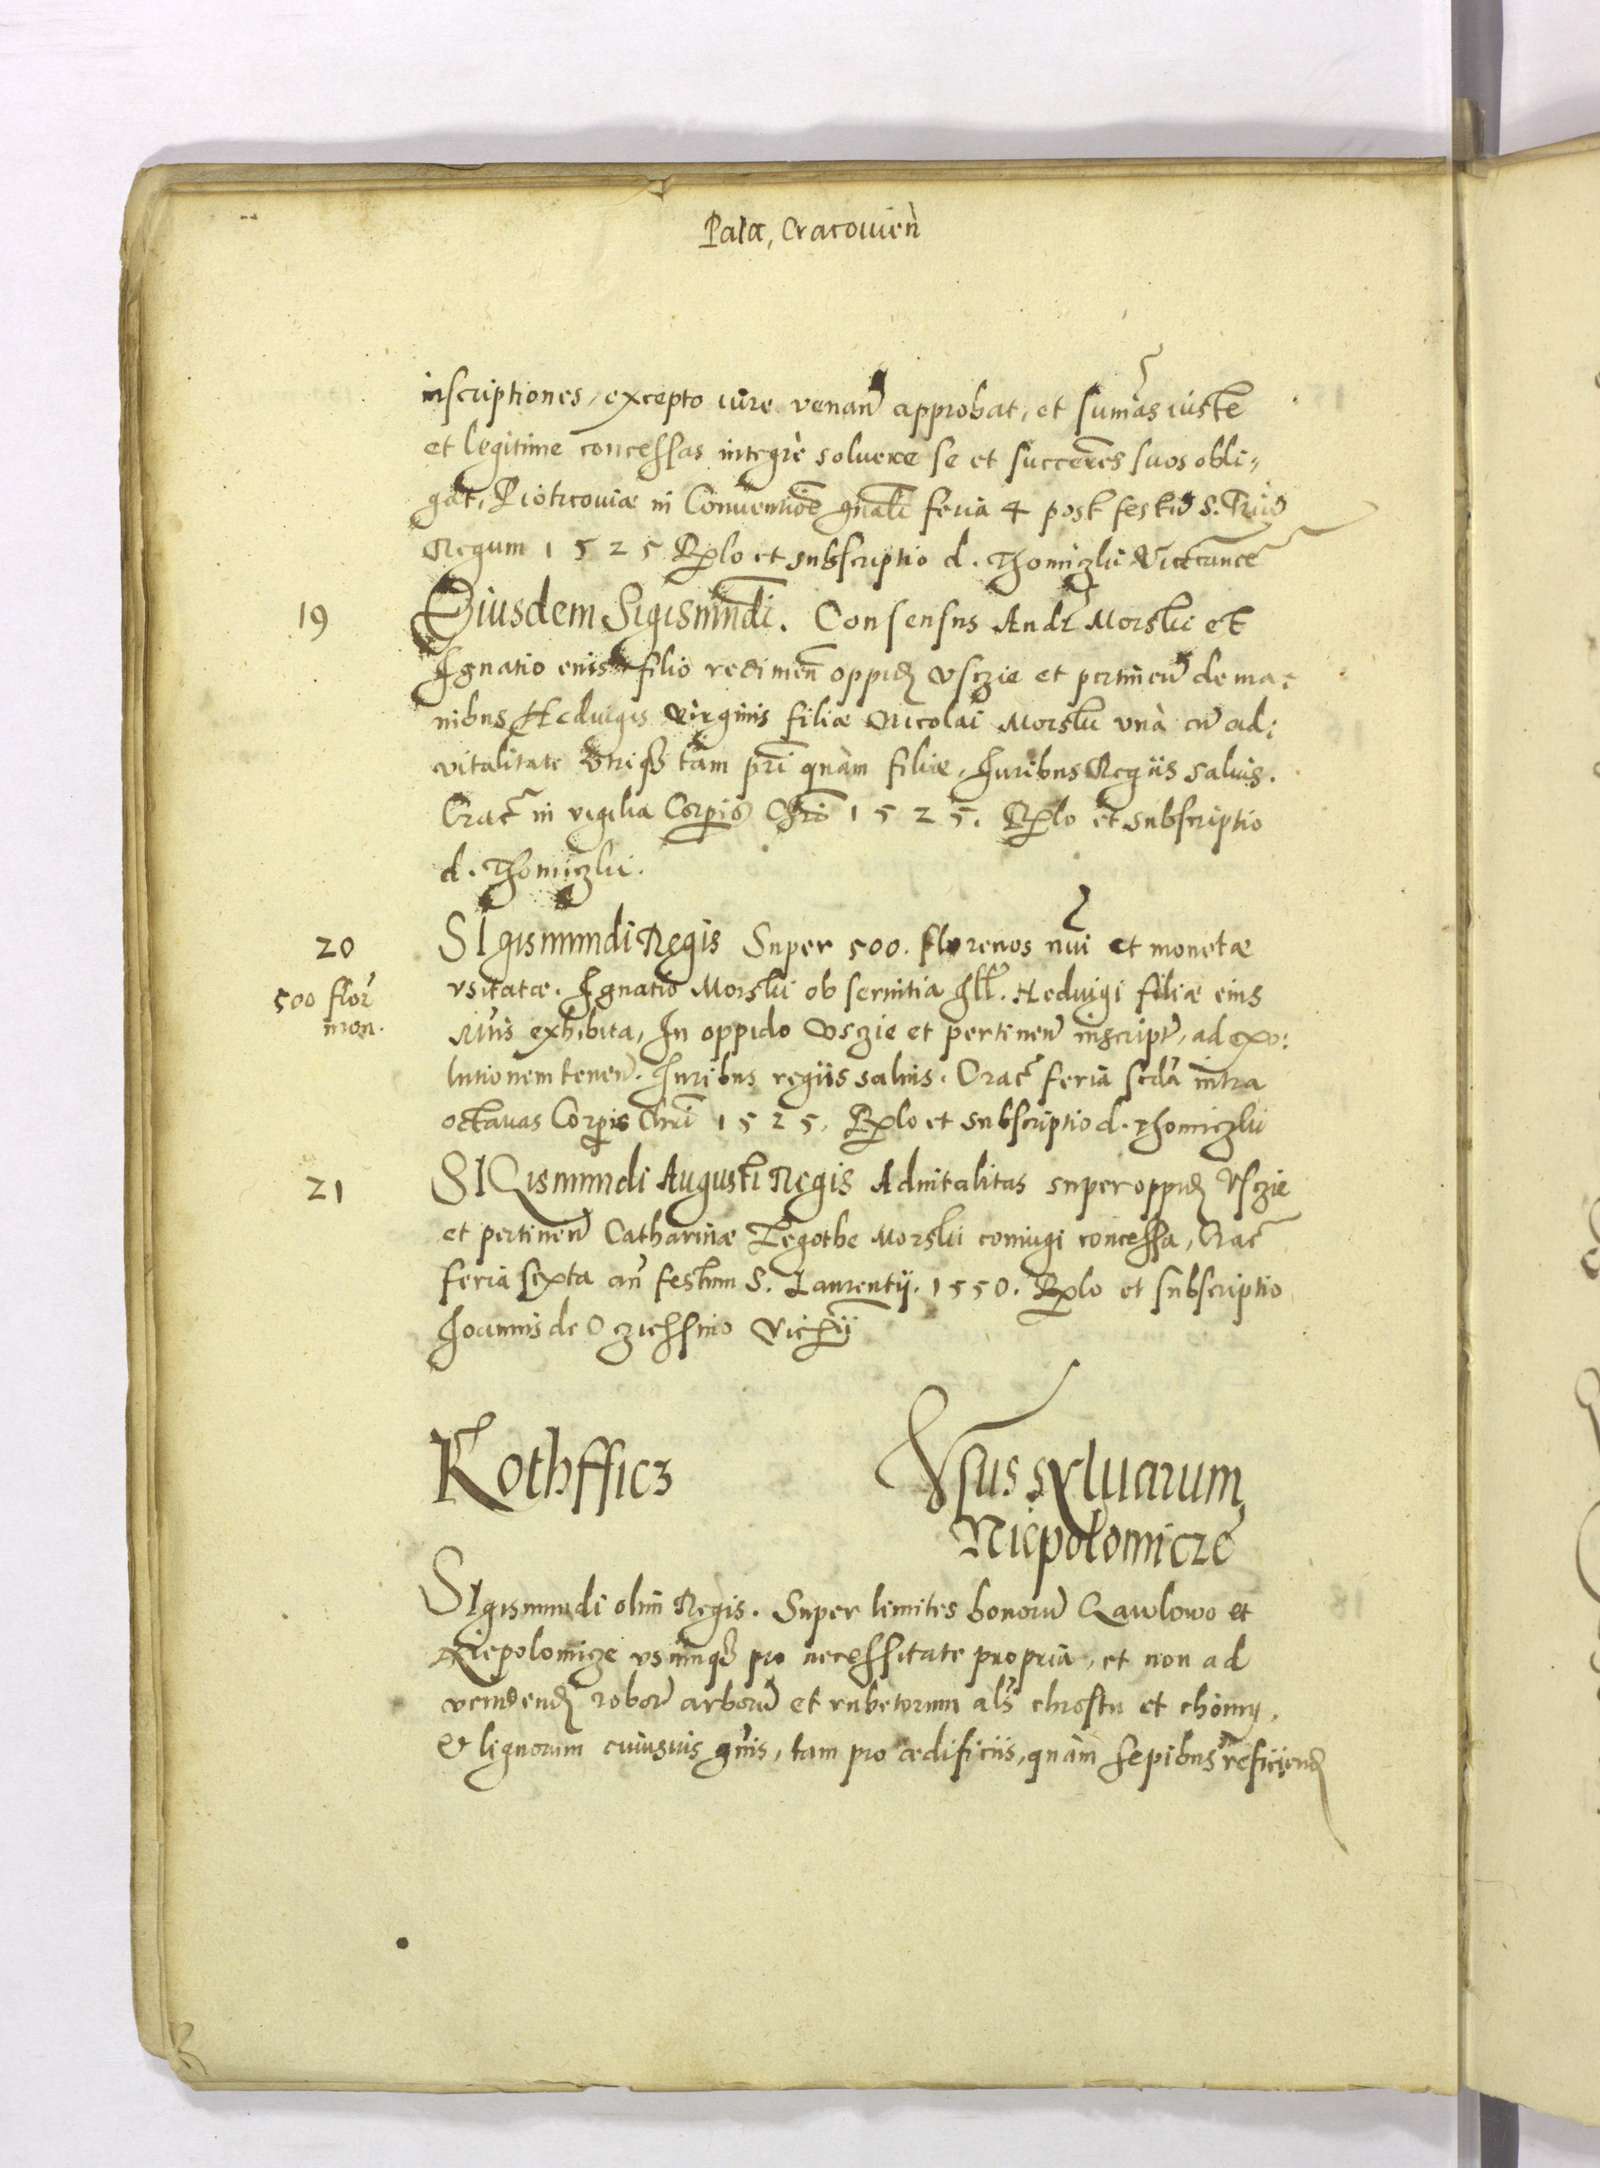 Pala, Cracouien
inscriptiones, excepto iure venan̄ approbat, et sumas iuste
et legitime concessas integrè soluere se et succeres suos obli-
gat, Piotrcouiæ in Conuentioe gnali feria 4 post festū S. Triū
Regum 1525 Rlo et subscriptio d. Thomiczki Vicecance
19 Eiusdem Sigismundi. Consensus Andr Morski et
Ignatio eius filio redimen oppid Vsczie et pertinen de ma-
nibus Heduigis virginis filiæ Nicolai Morski vnà cū ad-
vitalitate vtriq tam pri quàm filiæ, Iuribus Regiis saluis.
Crac in vigilia Corpis Chri 1525. Rlo et subscriptio
d. Thomiczki.
20 SIgismundi Regis Super 500. florenos nui et monetæ
500 flor vsitatæ. Ignatio Morski ob seruitia Ill. Heduigi filiæ eius
mon. suis exhibita, In oppido Vsczie et pertinen inscript, ad exo-
lutionem tenen. Iuribus regiis saluis. Crac feria scda intra
octauas Corpis Chri 1525, Rlo et subscriptio d. Thomiczki
21 SIGismundi Augusti Regis Aduitalitas super oppid Vsczie
et pertinen Catharinæ Legothe Morski coniugi concessa, Crac
feria sexta an festum S. Laurentij. 1550. Rlo et subscriptio
Ioannis de Ocziessino
Kothfficz
Vsus syluarum
Niepolomicze
SIgismundi olim Regis. Super limites bonorū Gawlowo et
Niepolomicze vsumq pro necessitate propria, et non ad
vendend robor arborū et rubetorum als chrostu et choiny,
& lignorum cuiusuis gnis, tam pro ædificiis, quàm sepibus reficiend